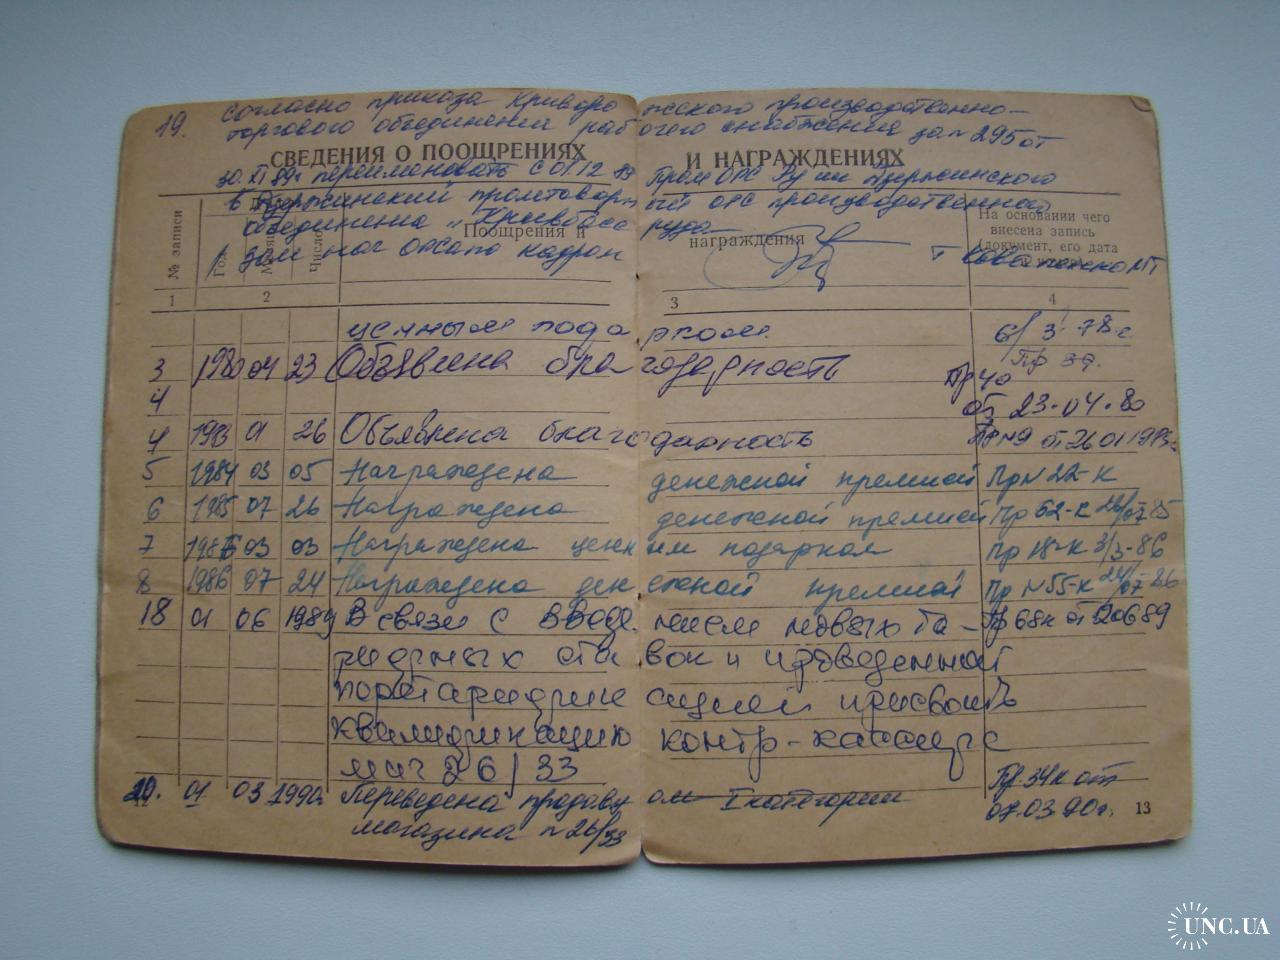 19. Согласно приказа Криворожского производственно-
торгового объединения рабочего снабжения за № 295 от
СВЕДЕНИЯ О ПООЩРЕНИЯХ И НАГРАЖДЕНИЯХ
30.XI 89г переименовать с 01.12 89 Пром ОРС Ру им Дзержинского
в Дзержинский промтоварный ОРС производственного
объединения "Кривбассруда"
Зам нач ОРСа по кадрам
№ записи
Год
Месяц
Число
Поощрения и награждения
На основании чего
внесена запись
(документ, его дата
1 2 3 4
ценным подарком 6/3 78г
Пр 39.
3 1980 04 23 Объявлена благодарность Пр 40
4 от 23.04.80
4 1983 01 26 Объявлена благодарность Пр №9 от 26 01 1983г
5 1984 03 05 Награждена денежной премией Пр № 22-К
6 1985 07 26 Награждена денежной премией Пр 62-К 26/07-85
7 1986 03 03 Награждена ценным подарком Пр 18-К 3/3-86
8 1986 07 24 Награждена денежной премией Пр № 55-К 24/07-86
18 01 06 1989 В связи с введением новых та- Пр 68к от 20689
рифных ставок и проведенной
перетарификацией присвоить
квалификацию контр-кассира
маг 26/33
20. 01 03 1990г. Переведена продавцом I категории Пр. 34к от
магазина № 26/33 07.03.90г.
13
UNC.UA